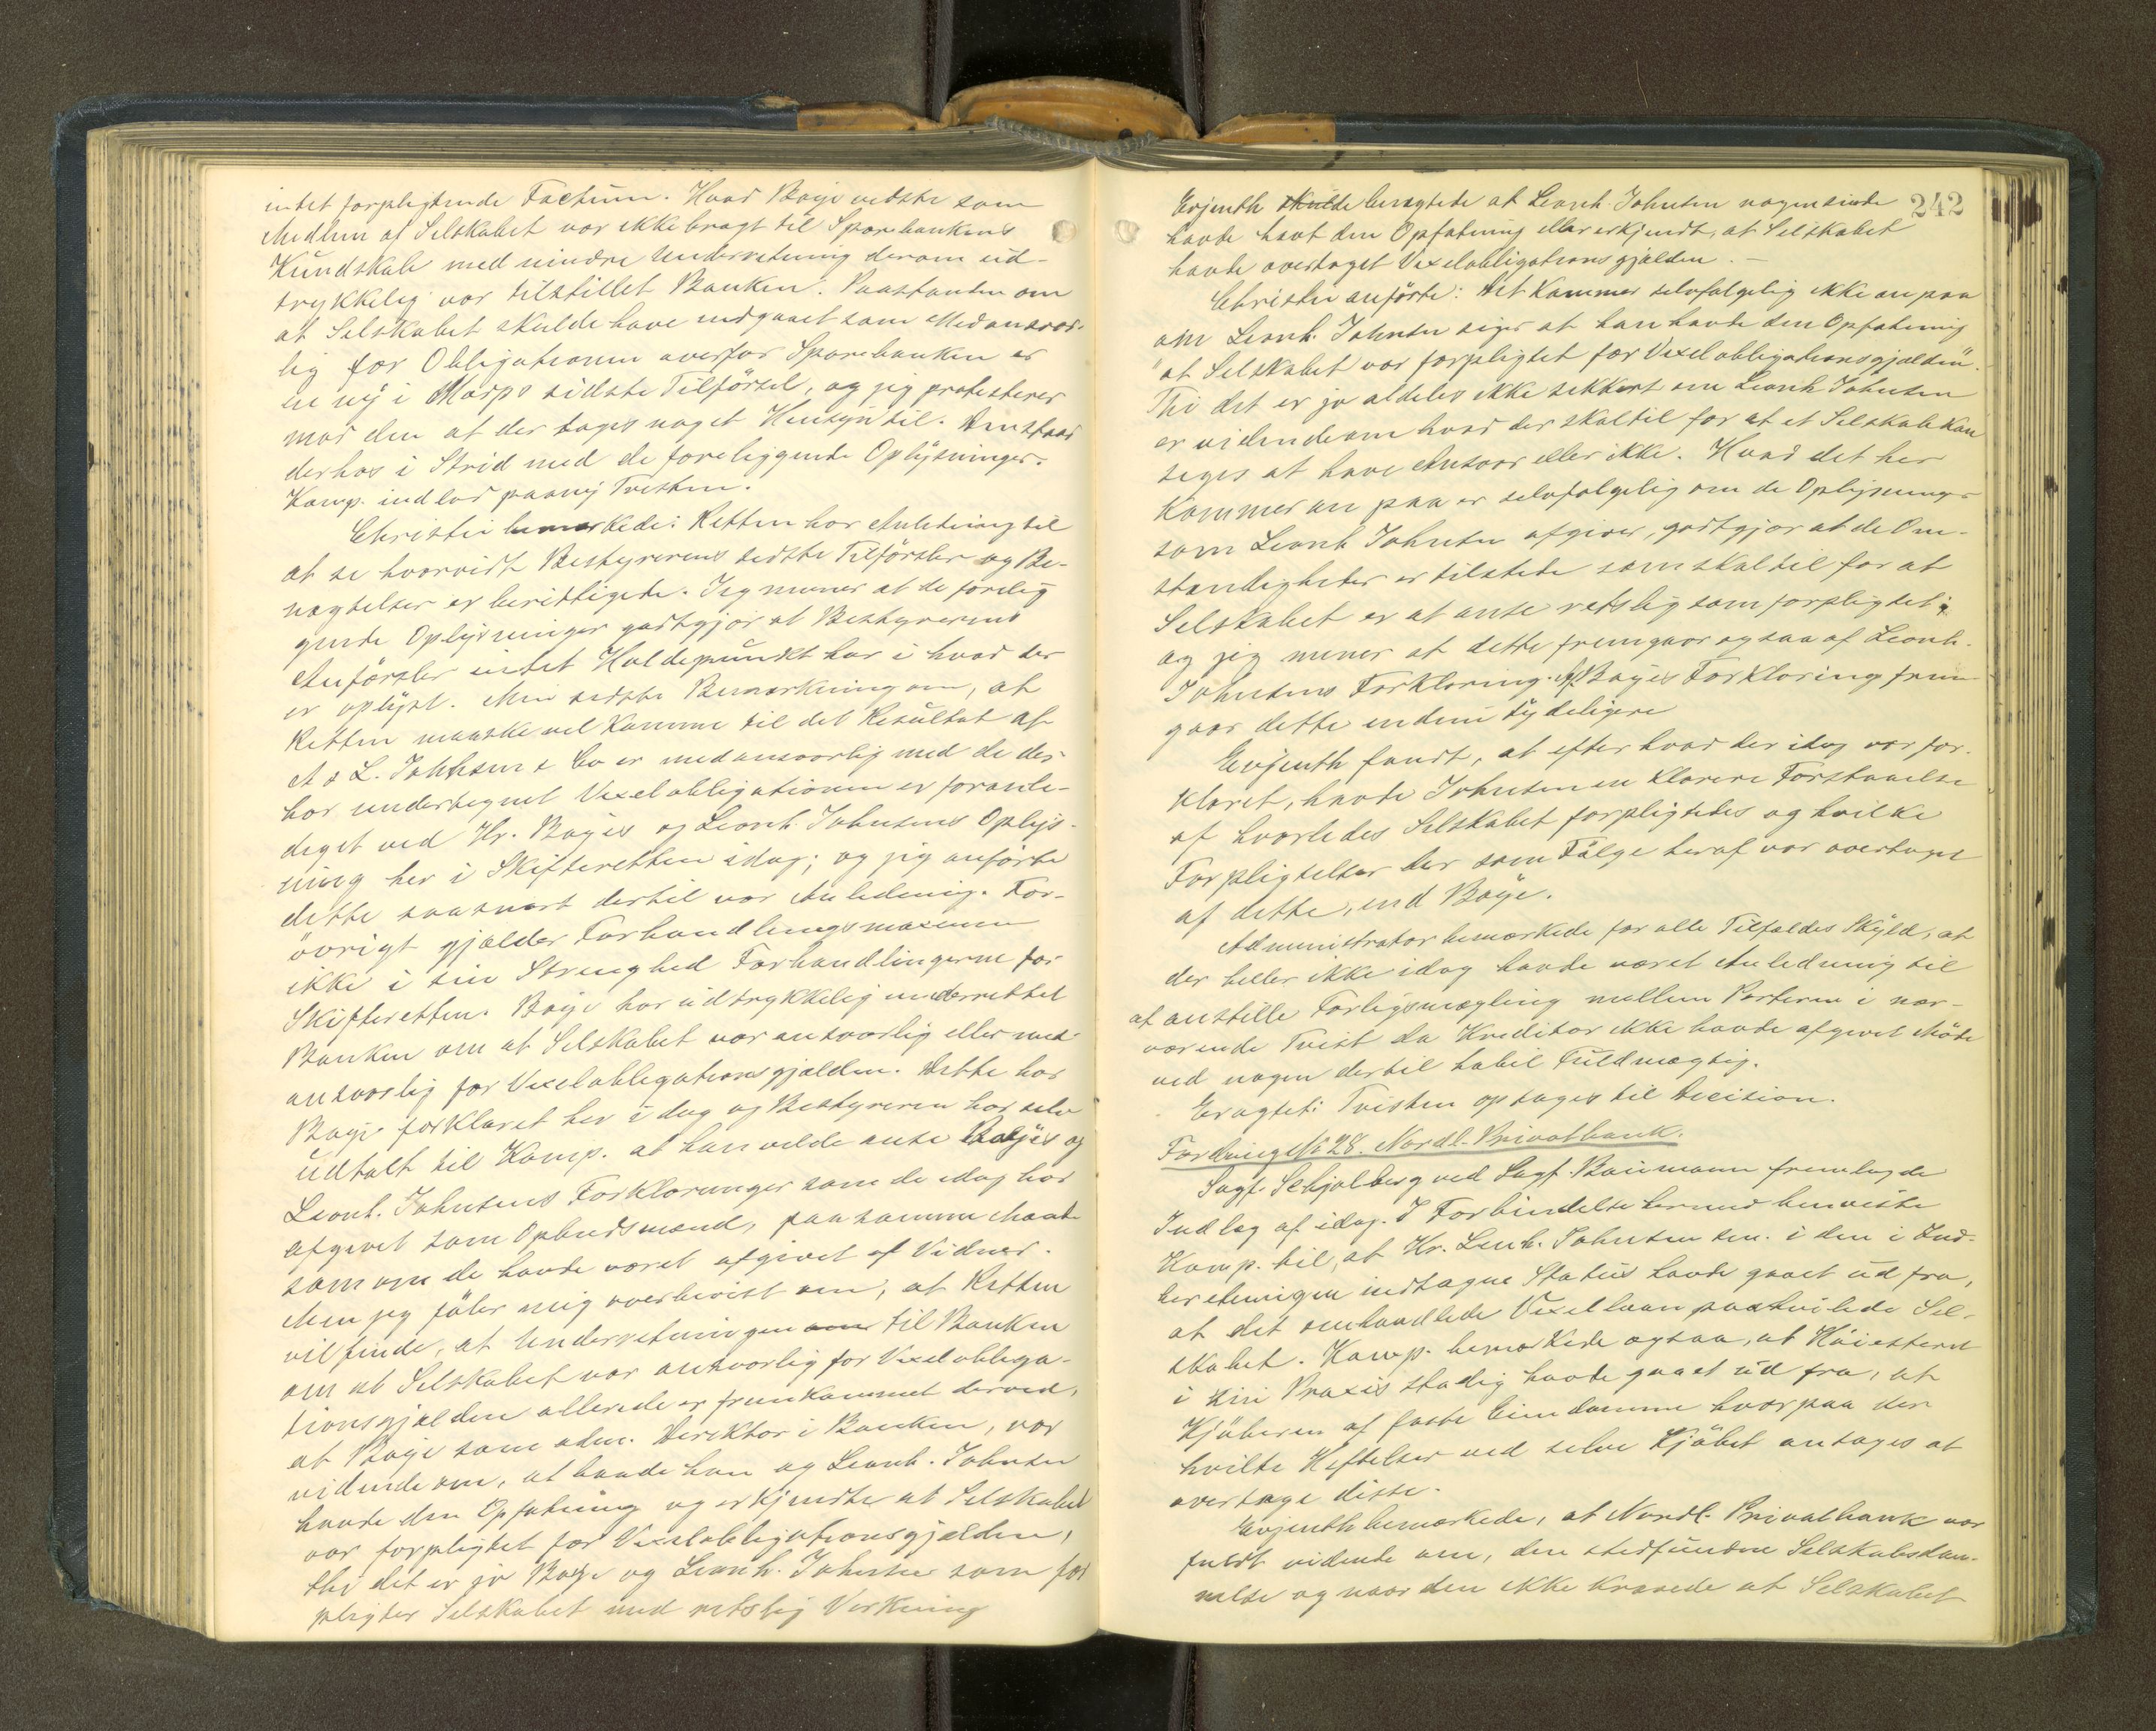 intet forpligtende Factum. Hvad Baÿe vidste som
Medlem af Selskabet var ikke bragt til Sparebankens
Kundskab med mindre Underretning derom ud-
trykkelig var tilstillet Banken. Paastanden om
at Selskabet skulde have indgaaet som Medansvar-
lig for Obligationen overfor Sparebanken er
en nÿ i Morps sidste Tilförsel, og jeg protesterer
mod den at der tages noget Hensÿn til. Den staar
derhos i Strid med de foreliggende Oplÿsninger.
Komp. indlod paanÿ Tvisten.
Christie bemærkede: Retten har Anledning til
at se hvorvidt Bestyrerens sidste Tilförsler og Be-
nægtelser er berettigede. Jeg mener at de forelig
gende Oplÿsninger godtgjör at Bestyrerens
Anförsler intet Holdepunkt har i hvad der
er oplÿst. Min sidste Bemærkning om, at
Retten maaske vil komme til det Resultat at
A/s L. Johnsen & Co er medansvarlig med de der
har undertegnet Vexelobligationen er foranle-
diget ved Hr. Baÿes og Leonh. Johnsens Oplÿs-
ning her i Skifteretten idag; og jeg anförte
dette saasnart dertil var Anledning. For-
övrigt gjælder Forhandlingsmaximen
ikke i sin Strenghed Forhandlingerne for
Skifteretten. Baÿe har udtrykkelig underrettet
Banken om at Selskabet var ansvarlig eller med-
ansvarlig for Vexelobligationsgjælden. Dette har
Baÿe forklaret her i dag og Bestyreren har selv
udtalt til Komp. at han vilde anse Baÿes og
Leonh. Johnsens Forklaringer som de idag har
afgivet som Opbudsmænd, paa samme Maade
som om de havde været afgivet af Vidner.
Men jeg föler mig overbevist om, at Retten
vil finde, at Underretningen om til Banken
om at Selskabet var ansvarlig for Vexelobliga-
tionsgjælden allerede er fremkommet derved,
at Baÿe som adm. Direktör i Banken, var
vidende om, at baade han og Leonh. Johnsen
havde den Opfatning og erkjendte at Selskabet
var forpligtet for Vexelobligationsgjælden,
thi det er jo Baÿe og Leonh. Johnsen som for
pligter Selskabet med retslig Virkning
242
Evjenth skulde benægtede at Leonh Johnsen nogensinde
havde havt den Opfatning eller erkjendt, at Selskabet
havde overtaget Vexelobligationsgjælden. –
Christie anförte: Det kommer selvfölgelig ikke an paa
om Leonh. Johnsen siger at han havde den Opfatning
"at Selskabet var forpligtet for Vexelobligationsgjælden".
Thi det er jo aldeles ikke sikkert om Leonh Johnsen
er vidende om hvad der skal til for at et Selskab kan
siges at have Ansvar eller ikke. Hvad det her
kommer an paa er selvfölgelig om de Oplÿsninger
som Leonh Johnsen afgiver, godtgjör at de Om-
stændigheder er tilstede som skal til for at
Selskabet er at anse retslig som forpligtet;
og jeg mener at dette fremgaar ogsaa af Leonh.
Johnsens Forklaring. Af Baÿes Forklaring frem
gaar dette endnu tÿdeligere
Evjenth fandt, at efter hvad der idag var for-
klaret, havde Johnsen en klarere Forstaaelse
af hvorledes Selskabet forpligtedes og hvilke
Forpligtelser der som Fölge heraf var overtaget
af dette, end Baÿe.
Administrator bemærkede for alle Tilfældes Skÿld, at
der heller ikke idag havde været Anledning til
at anstille Forligsmægling mellem Parterne i nær-
værende Tvist da Kreditor ikke havde afgivet Möde
ved nogen dertil habil Fuldmægtig.
Eragtet: Tvisten optages til Decision.
Fordring № 28. Nordl. Privatbank.
Sagf. Schjelberg ved Sagf. Baumann fremlagde
Indlæg af idag. I Forbindelse hermed henviste
Komp. til, at Hr. Leonh. Johnsen sen. i den i Ind-
beretningen indtagne Status havde gaaet ud fra,
at det omhandlede Vexellaan paahvilede Sel-
skabet. Komp. bemærkede ogsaa, at Höiesteret
i sin Praxis stadig havde gaaet ud fra, at
Kjöberen af faste Eiendomme hvorpaa der
hvilte Heftelser ved selve Kjöbet antages at
overtage disse.
Evjenth bemærkede, at Nordl. Privatbank var
fuldt vidende om, den stedfundne Selskabsdan-
nelse og naar den ikke krævede at Selskabet